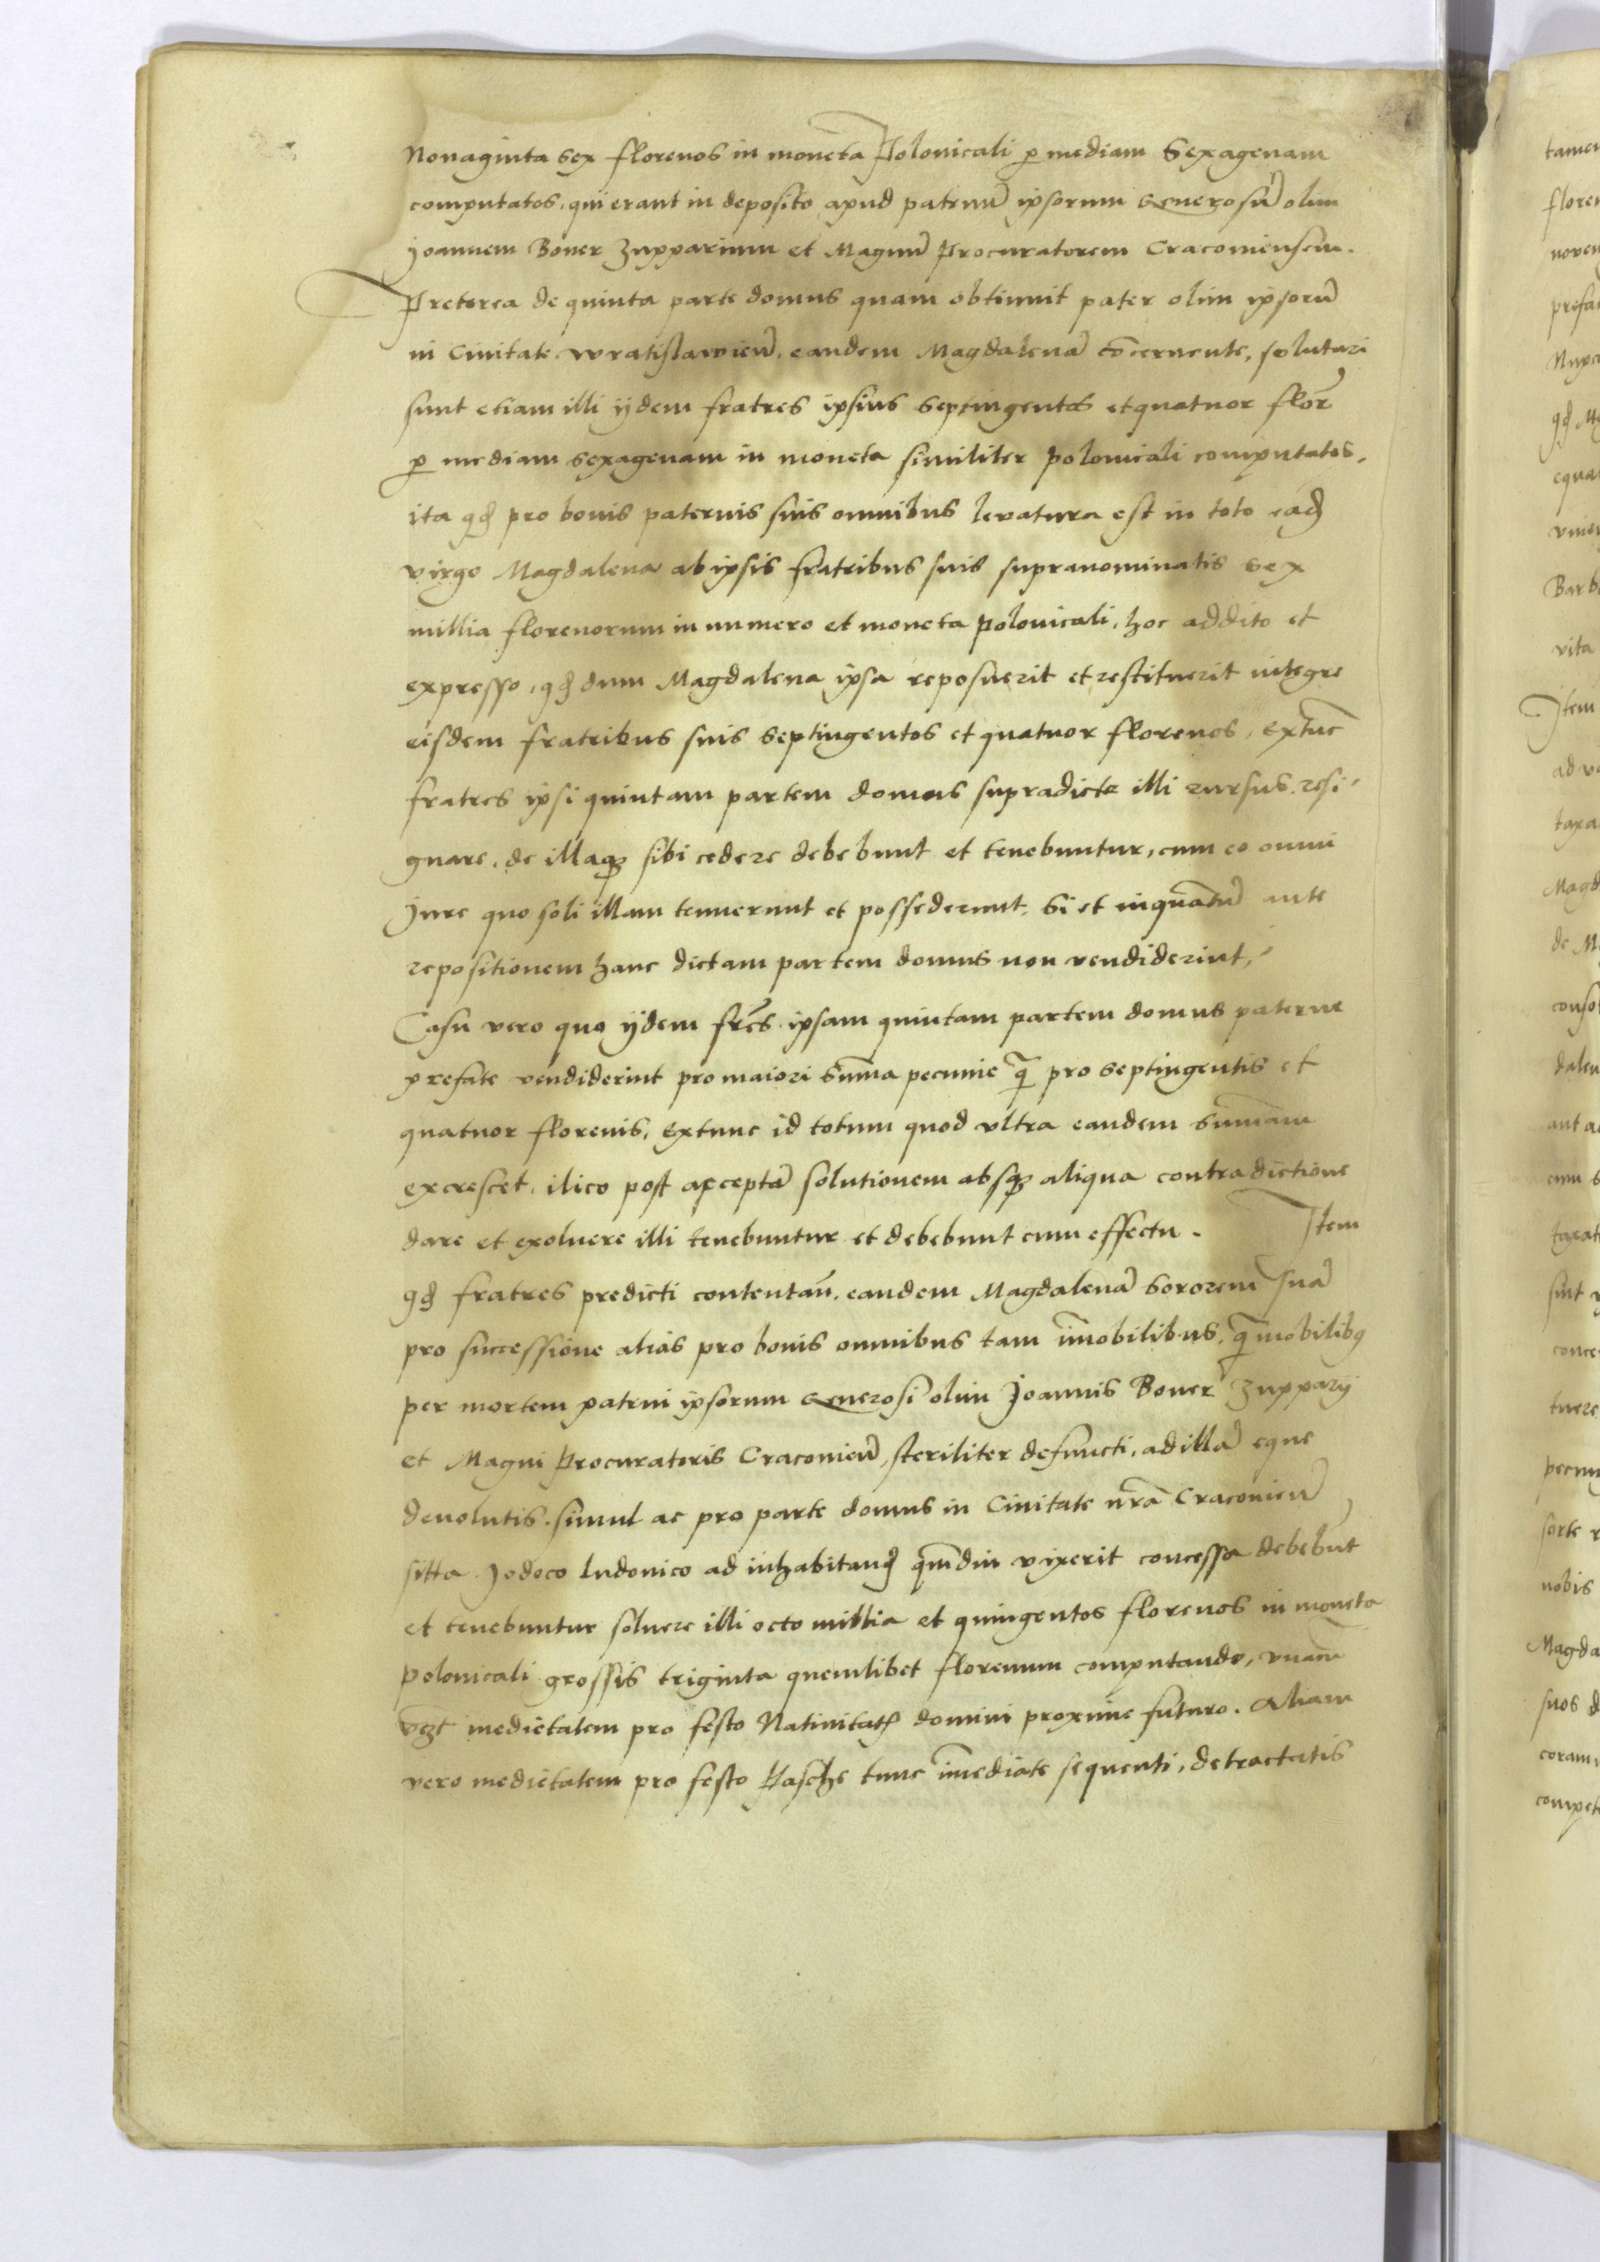 Nonaginta sex florenos in moneta Polonicali ꝑ mediam Sexagenam
computatos, qui erant in deposito apud patruū ipsorum Generosū olim
Joannem Boner Zupparium et Magnū Procuratorem Cracoviensem.
Preterea de quinta parte domus quam obtinuit pater olim ipsorū
in Civitate Wratislawieñ, eandem Magdalenā cōcernente, soluturi
sunt etiam illi ijdem fratres ipsius septingentos et quatuor floř
ꝑ mediam sexagenam in moneta similiter polonicali computatos,
ita qđ pro bonis paternis suis omnibus levatura est in toto eađ
virgo Magdalena ab ipsis fratribus suis supranominatis sex
millia florenorum in numero et moneta polonicali, hoc addito et
expresso, qđ dum Magdalena ipsa reposuerit et restituerit integre
eisdem fratribus suis septingentos et quatuor florenos, extūc
fratres ipsi quintam partem domus supradicte illi rursus resi-
gnare, de illaqꝫ sibi cedere debebunt et tenebuntur, cum eo omni
Jure quo soli illam tenuerunt et possederunt, Si et inquātū ante
repositionem hanc dictam partem domus non vendiderint,
Casu vero quo ijdem frēs ipsam quintam partem domus paterne
prefate vendiderint pro maiori sūma pecunie q̄ pro septingentis et
quatuor florenis, extunc id totum quod ultra eandem summam
excrescet, ilico post acceptā solutionem absqꝫ aliqua contradictione
dare et exoluere illi tenebuntur et debebunt cum effectu. Item
qđ fratres predicti contentañ eandem Magdalenā sororem suā
pro successione alias pro bonis omnibus tam īmobilibus, q̄ mobilibꝰ
per mortem patrui ipsorum Generosi olim Joannis Boner Zupparij
et Magni Procuratoris Cracovieñ, steriliter defuncti, ad illā eque
devolutis, simul ac pro parte domus in Civitate nr̄a Cracovieñ
sitta Jodoco Ludovico ad inhabitanđ qm̄diu vixerit concessa debebūt
et tenebuntur soluere illi octo millia et quingentos florenos in moneta
polonicali grossis triginta quemlibet florenum computando, vnam
vꝫt medietatem pro festo Nativitatꝭ domini proxime futuro. Aliam
vero medietatem pro festo Pasche tunc īmediate sequenti, detractatis